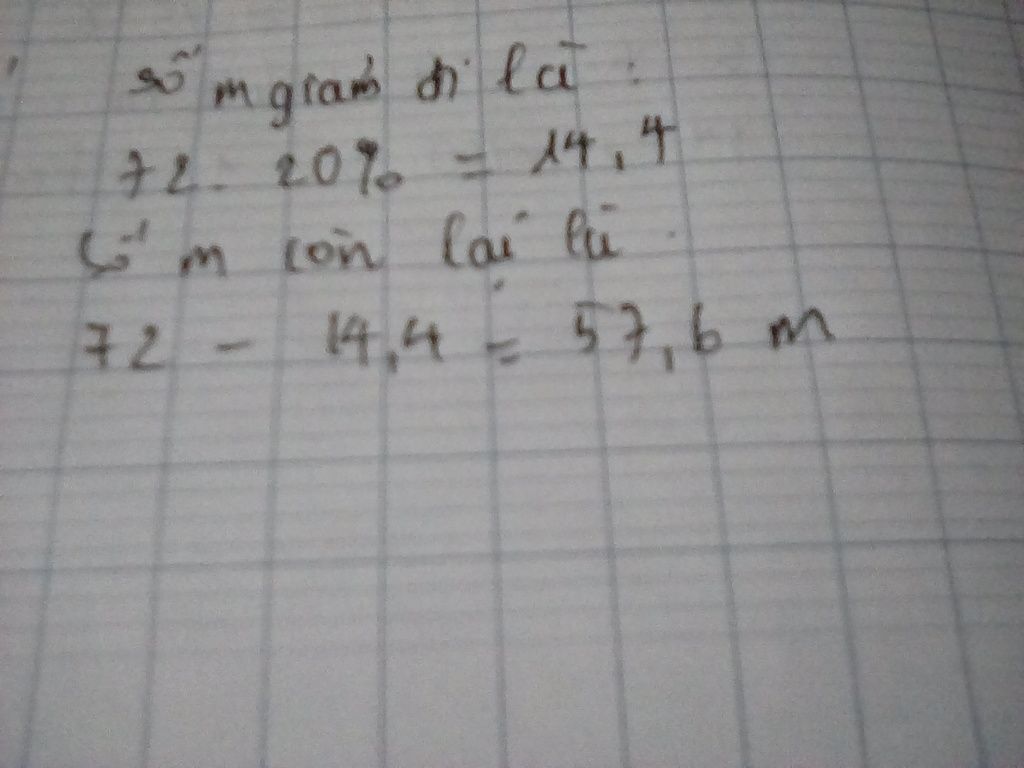 số m giảm đi là :
72. 20% = 14,4
Số m còn lại là
72 - 14,4 = 57,6 m